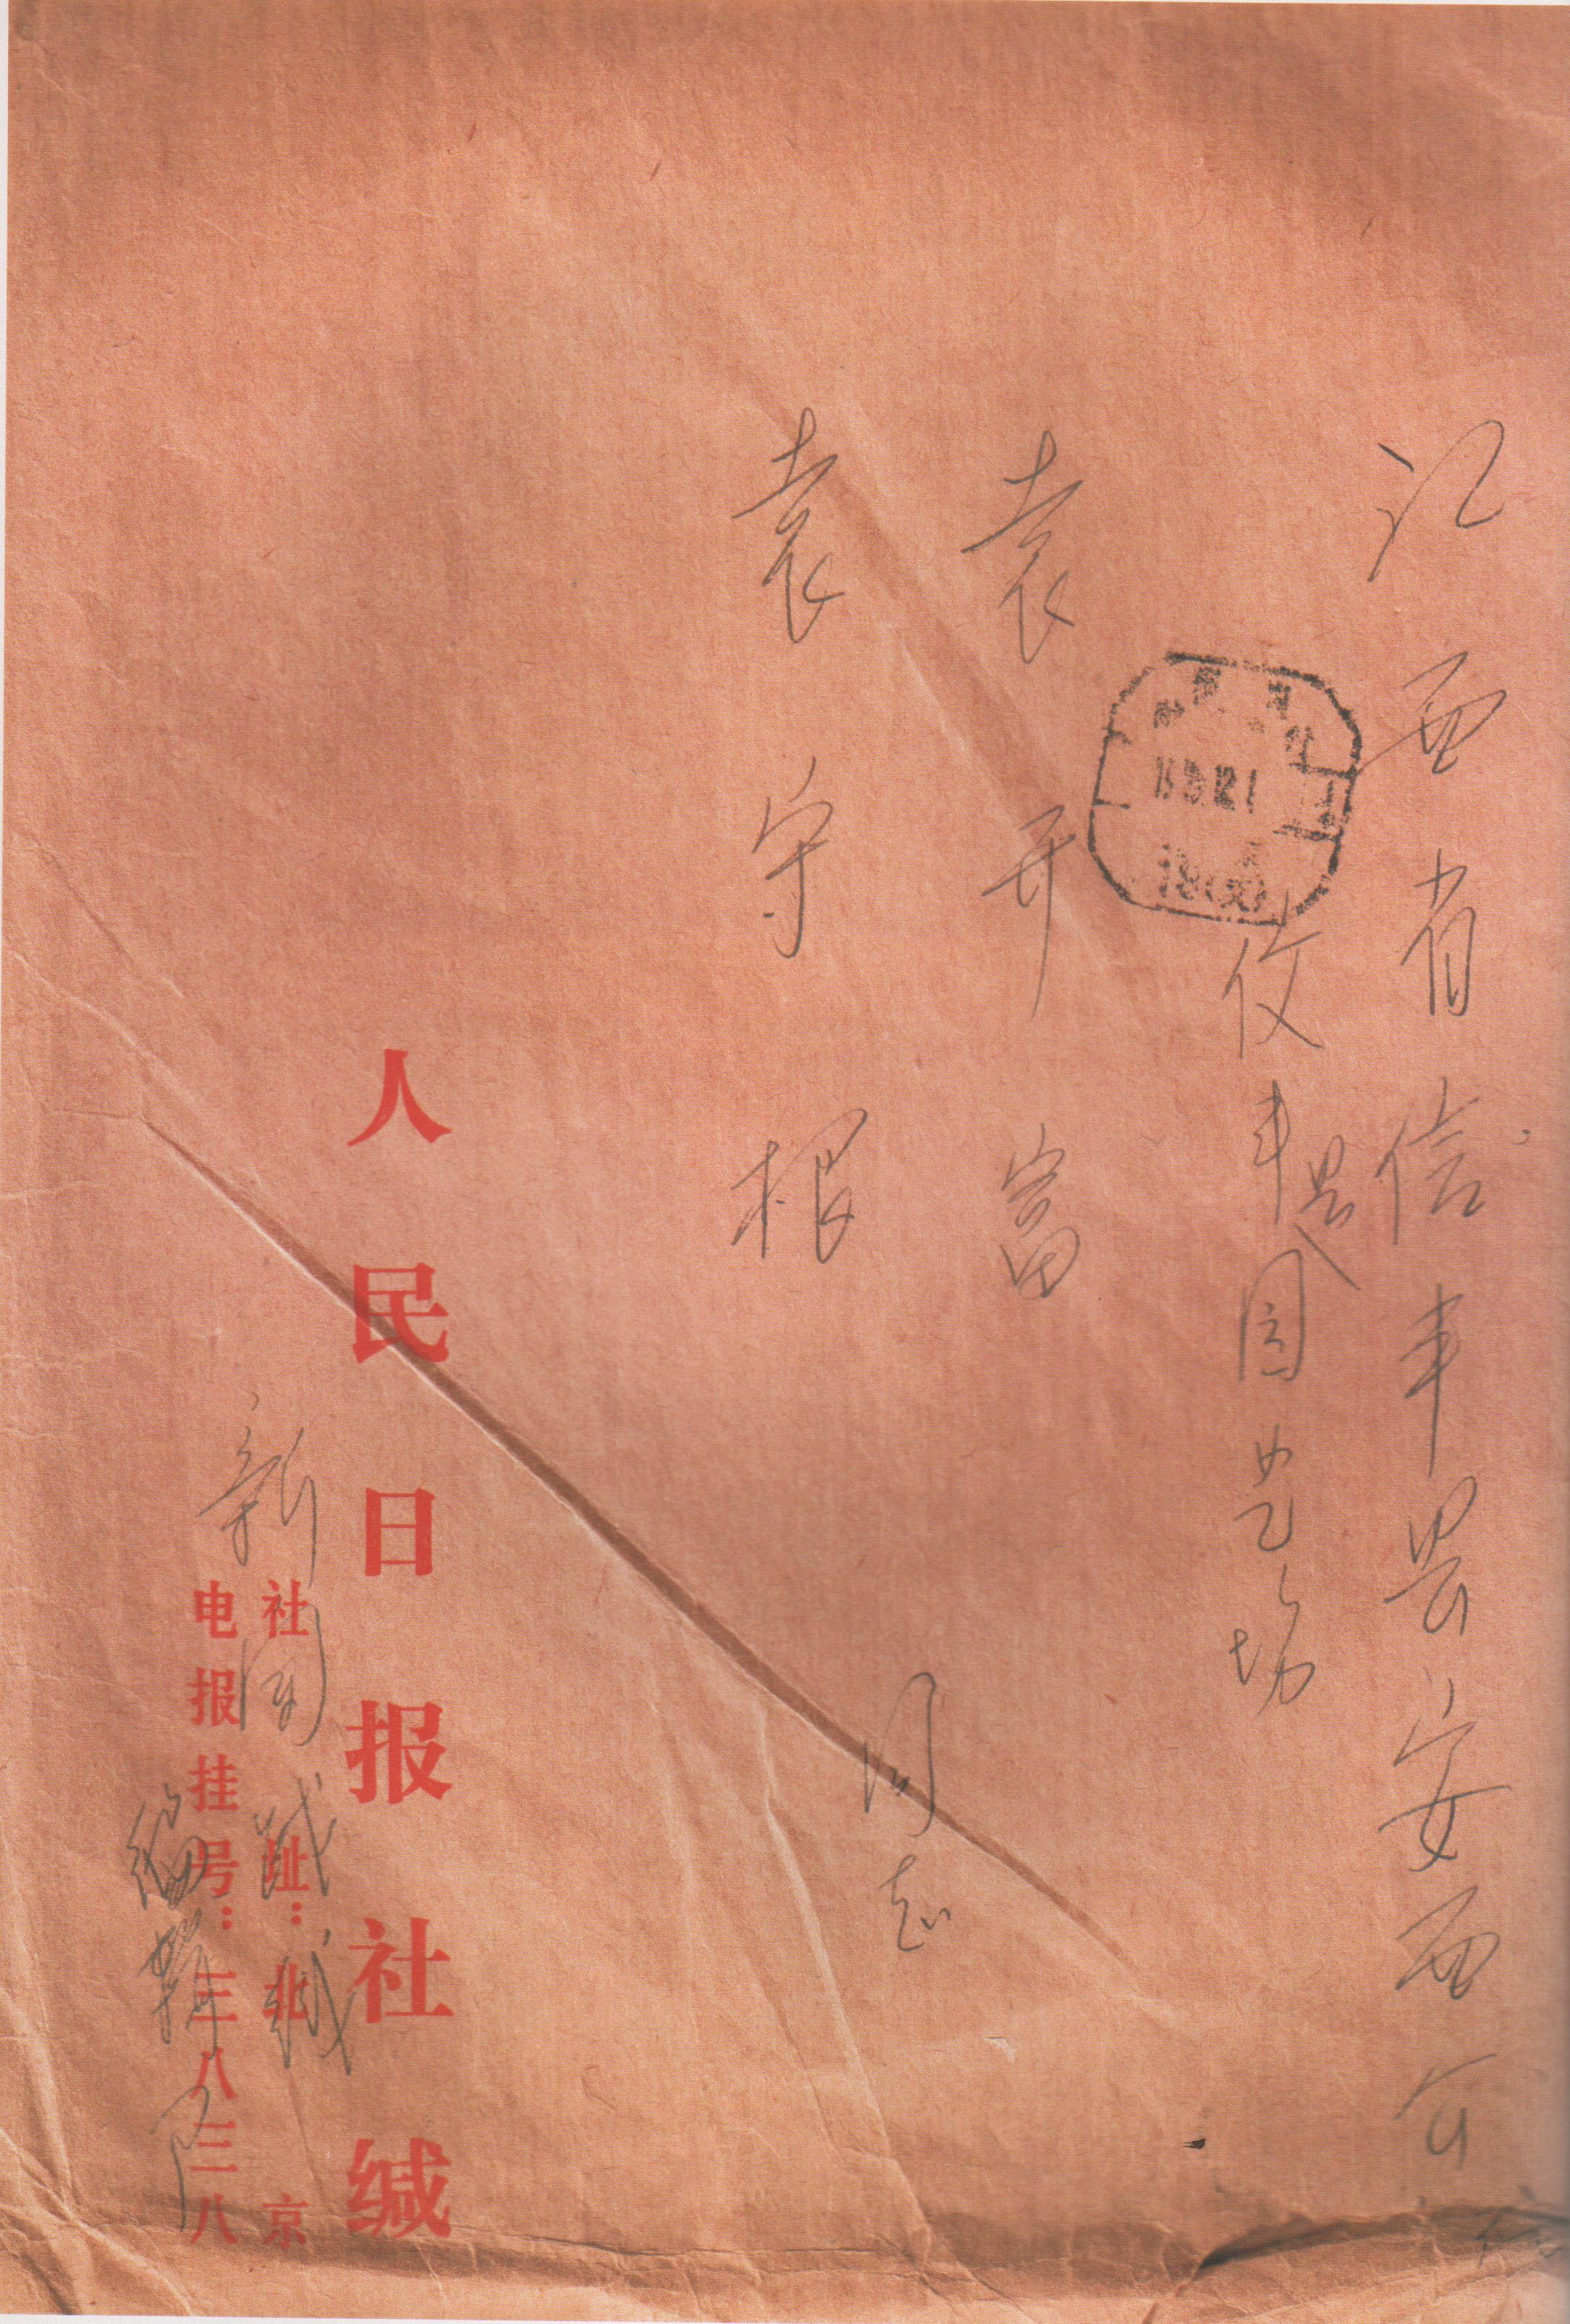 江西省信丰县安西公
丰县园艺场
袁开富
袁守根
同志
人民日报社缄
社址：北京
电报挂号：三八三八
新闻战线
编辑